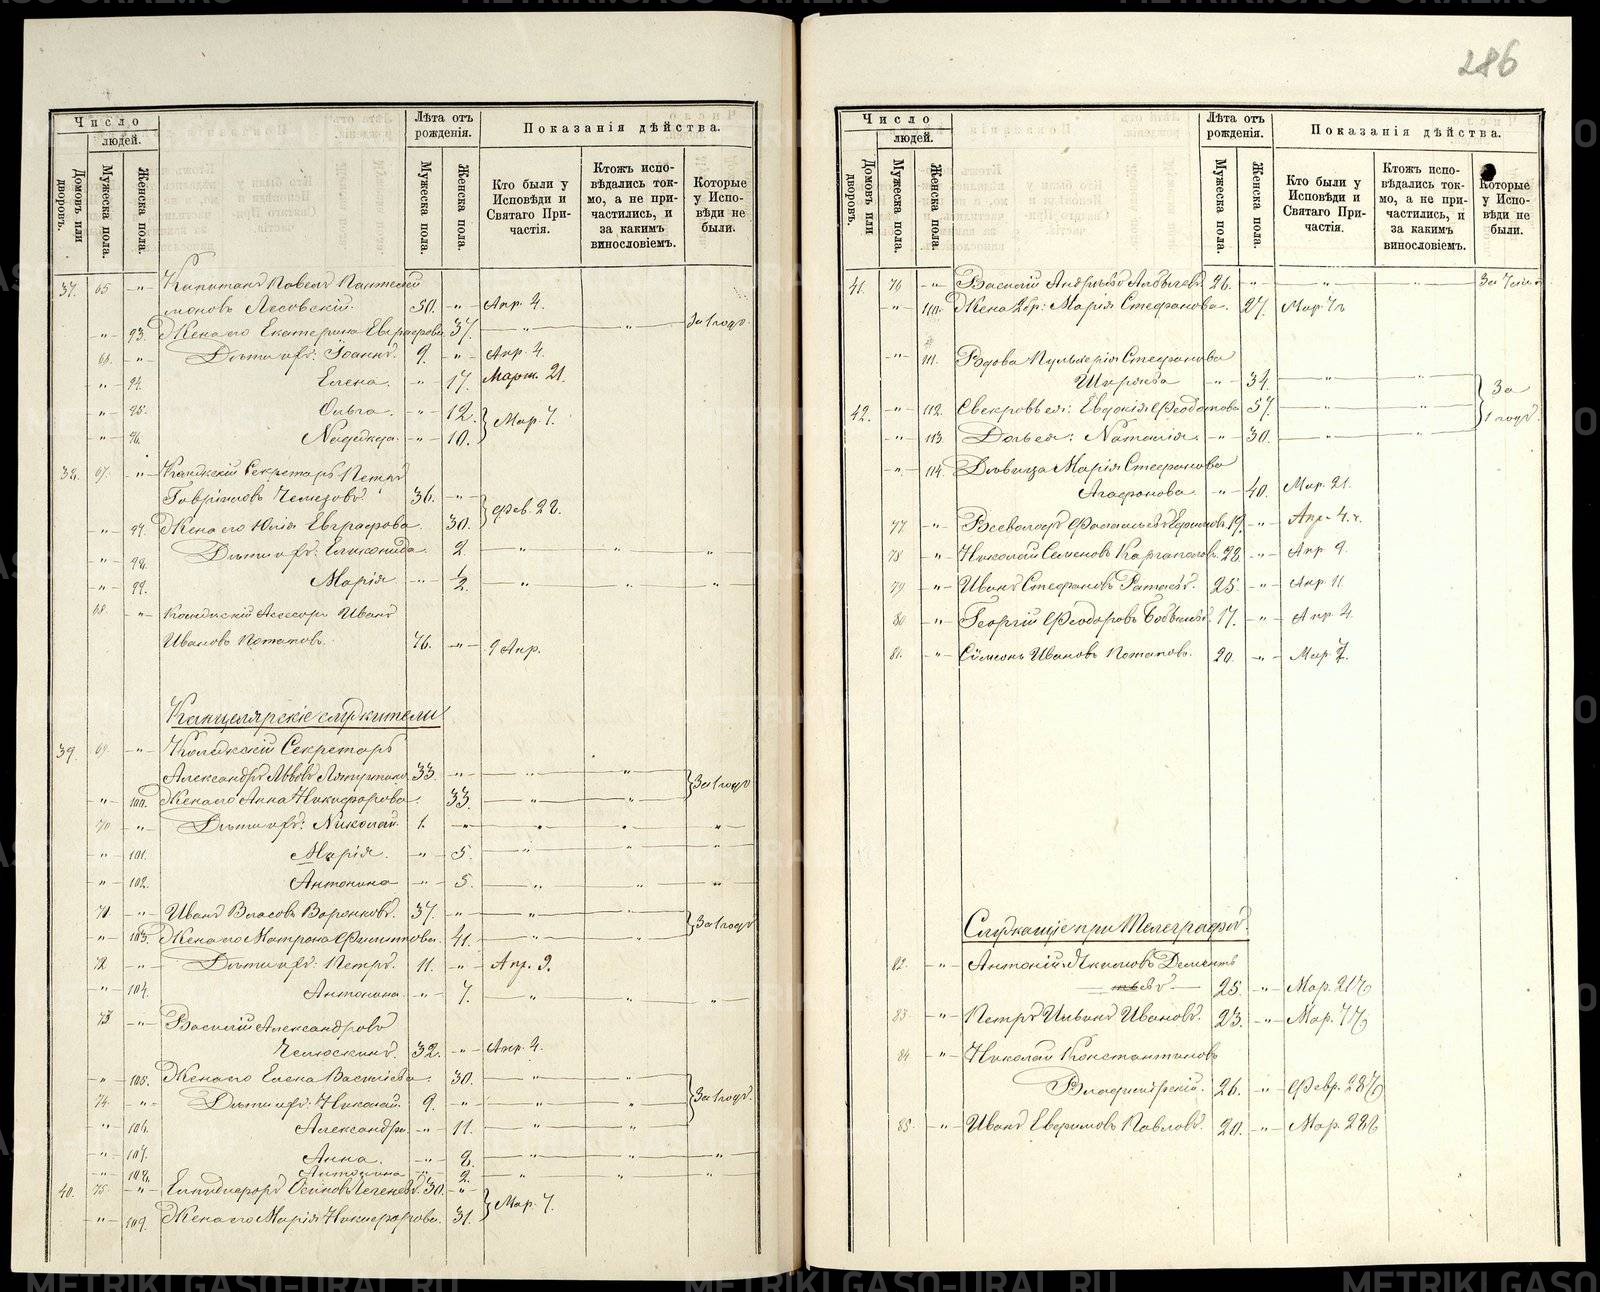 286
Число
людей.
Домовъ или дворовъ.
Мужеска пола.
Женска пола.
Лѣта отъ рожденія.
Мужеска пола.
Женска пола.
Показанія дѣйства.
Кто были у Исповѣди и Святаго Причастія.
Ктожъ исповѣдались токмо, а не причастились, и за какимъ винословіемъ.
Которые у Исповѣди не были.
37. 65 -"- Капитанъ Павелъ Пантелей
моновъ Лесовскій. 50. -"- Апр. 4.
-"- 93. Жена его Екатерина Евграфова 37. -"- -"- За 1 годъ
66. -"- Дѣти ихъ: Іоаннъ. 9. -"- Апр. 4.
-"- 94. Елена. -"- 17. Март. 21.
-"- 95. Ольга. -"- 12. Мар. 7.
-"- 96. Надежда -"- 10.
38. 67. -"- Секретарь Петръ
36. -"- Фев. 28.
-"- 97. Жена его Юлія Евграфова. 30.
-"- 98. Дѣти ихъ: 2. -"- -"- -"-
-"- 99. Марія -"- 1/2. -"- -"- -"-
68. -"- Ассесоръ Иванъ
Ивановъ Потаповъ. 76. -"- 9 Апр.
Канцелярскіе служители
39. 69. -"- Коллежскій Секретарь
Александръ Львовъ 33. -"- -"- -"- За 1 годъ
-"- 100. Жена его Анна Никифорова. 33. -"- -"-
70 -"- Дѣти ихъ: Николай. 1. -"- -"- -"- -"-
-"- 101. Марія. -"- 5. -"- -"- -"-
-"- 102. Антонина -"- 5. -"- -"- -"-
71. -"- Иванъ Власовъ Воронковъ. 37. -"- -"- -"- За 1 годъ
-"- 103. Жена его Матрона Филиппова. 41. -"- -"-
72. -"- Дѣти ихъ: Петръ. 11. -"- Апр. 9.
-"- 104. Антонина. -"- 7. -"- -"- -"-
73 -"- Василій Александровъ
Челюскинъ. 32. -"- Апр. 4.
-"- 105. Жена его Елена Василіева. 30. -"- -"- За 1 годъ.
74. -"- Дѣти ихъ: Николай. 9. -"- -"- -"-
-"- 106. Александра. -"- 11. -"- -"-
-"- 107. Анна. -"- 8. -"- -"- -"-
-"- 108. Антонина -"- 2. -"- -"- -"-
40. 75. -"- Осиповъ 30. -"- Мар. 7.
-"- 109. Жена его Марія Никифорова. 31.
Число
людей.
Домовъ или дворовъ.
Мужеска пола.
Женска пола.
Лѣта отъ рожденія.
Мужеска пола.
Женска пола.
Показанія дѣйства.
Кто были у Исповѣди и Святаго Причастія.
Ктожъ исповѣдались токмо, а не причастились, и за какимъ винословіемъ.
Которые у Исповѣди не были.
41. 76 -"- Василій Андреевъ 26. -"- -"- -"-
-"- 110. Жена его: Марія Стефанова. 27. Мар. 7
-"- 111. Вдова Пульхерія Стефанова
-"- 34. -"- -"- За
42. -"- 112. Свекровь ея: Евдокія Феодотова 57. -"- -"- 1 годъ.
-"- 113. Дочь ея: Наталія. -"- 30. -"- -"-
-"- 114. Дѣвица Марія Стефанова
Агафонова. -"- 40. Мар. 21.
77 -"- Всеволодъ 19. -"- Апр. 4.
78 -"- Николай Семеновъ Каргаполовъ. 23. -"- Апр. 9.
79 -"- Иванъ Стефановъ 25. -"- Апр. 11
80 -"- Георгій Феодоровъ 17. -"- Апр. 4.
81. -"- Сѵмеонъ Ивановъ Потаповъ. 20. -"- Мар. 7.
Служащіе при Телеграфѣ.
82. -"- Антоній Якимовъ Дементь
евъ 25. -"- Мар. 21
83. -"- Петръ Ильинъ Ивановъ. 23. -"- Мар. 7
84 -"- Николай Константиновъ
Владимірскій. 26. -"- Февр. 28
85. -"- Иванъ Евфимовъ Павловъ. 20. -"- Мар. 28
METRIKI.GASO-URAL.RU